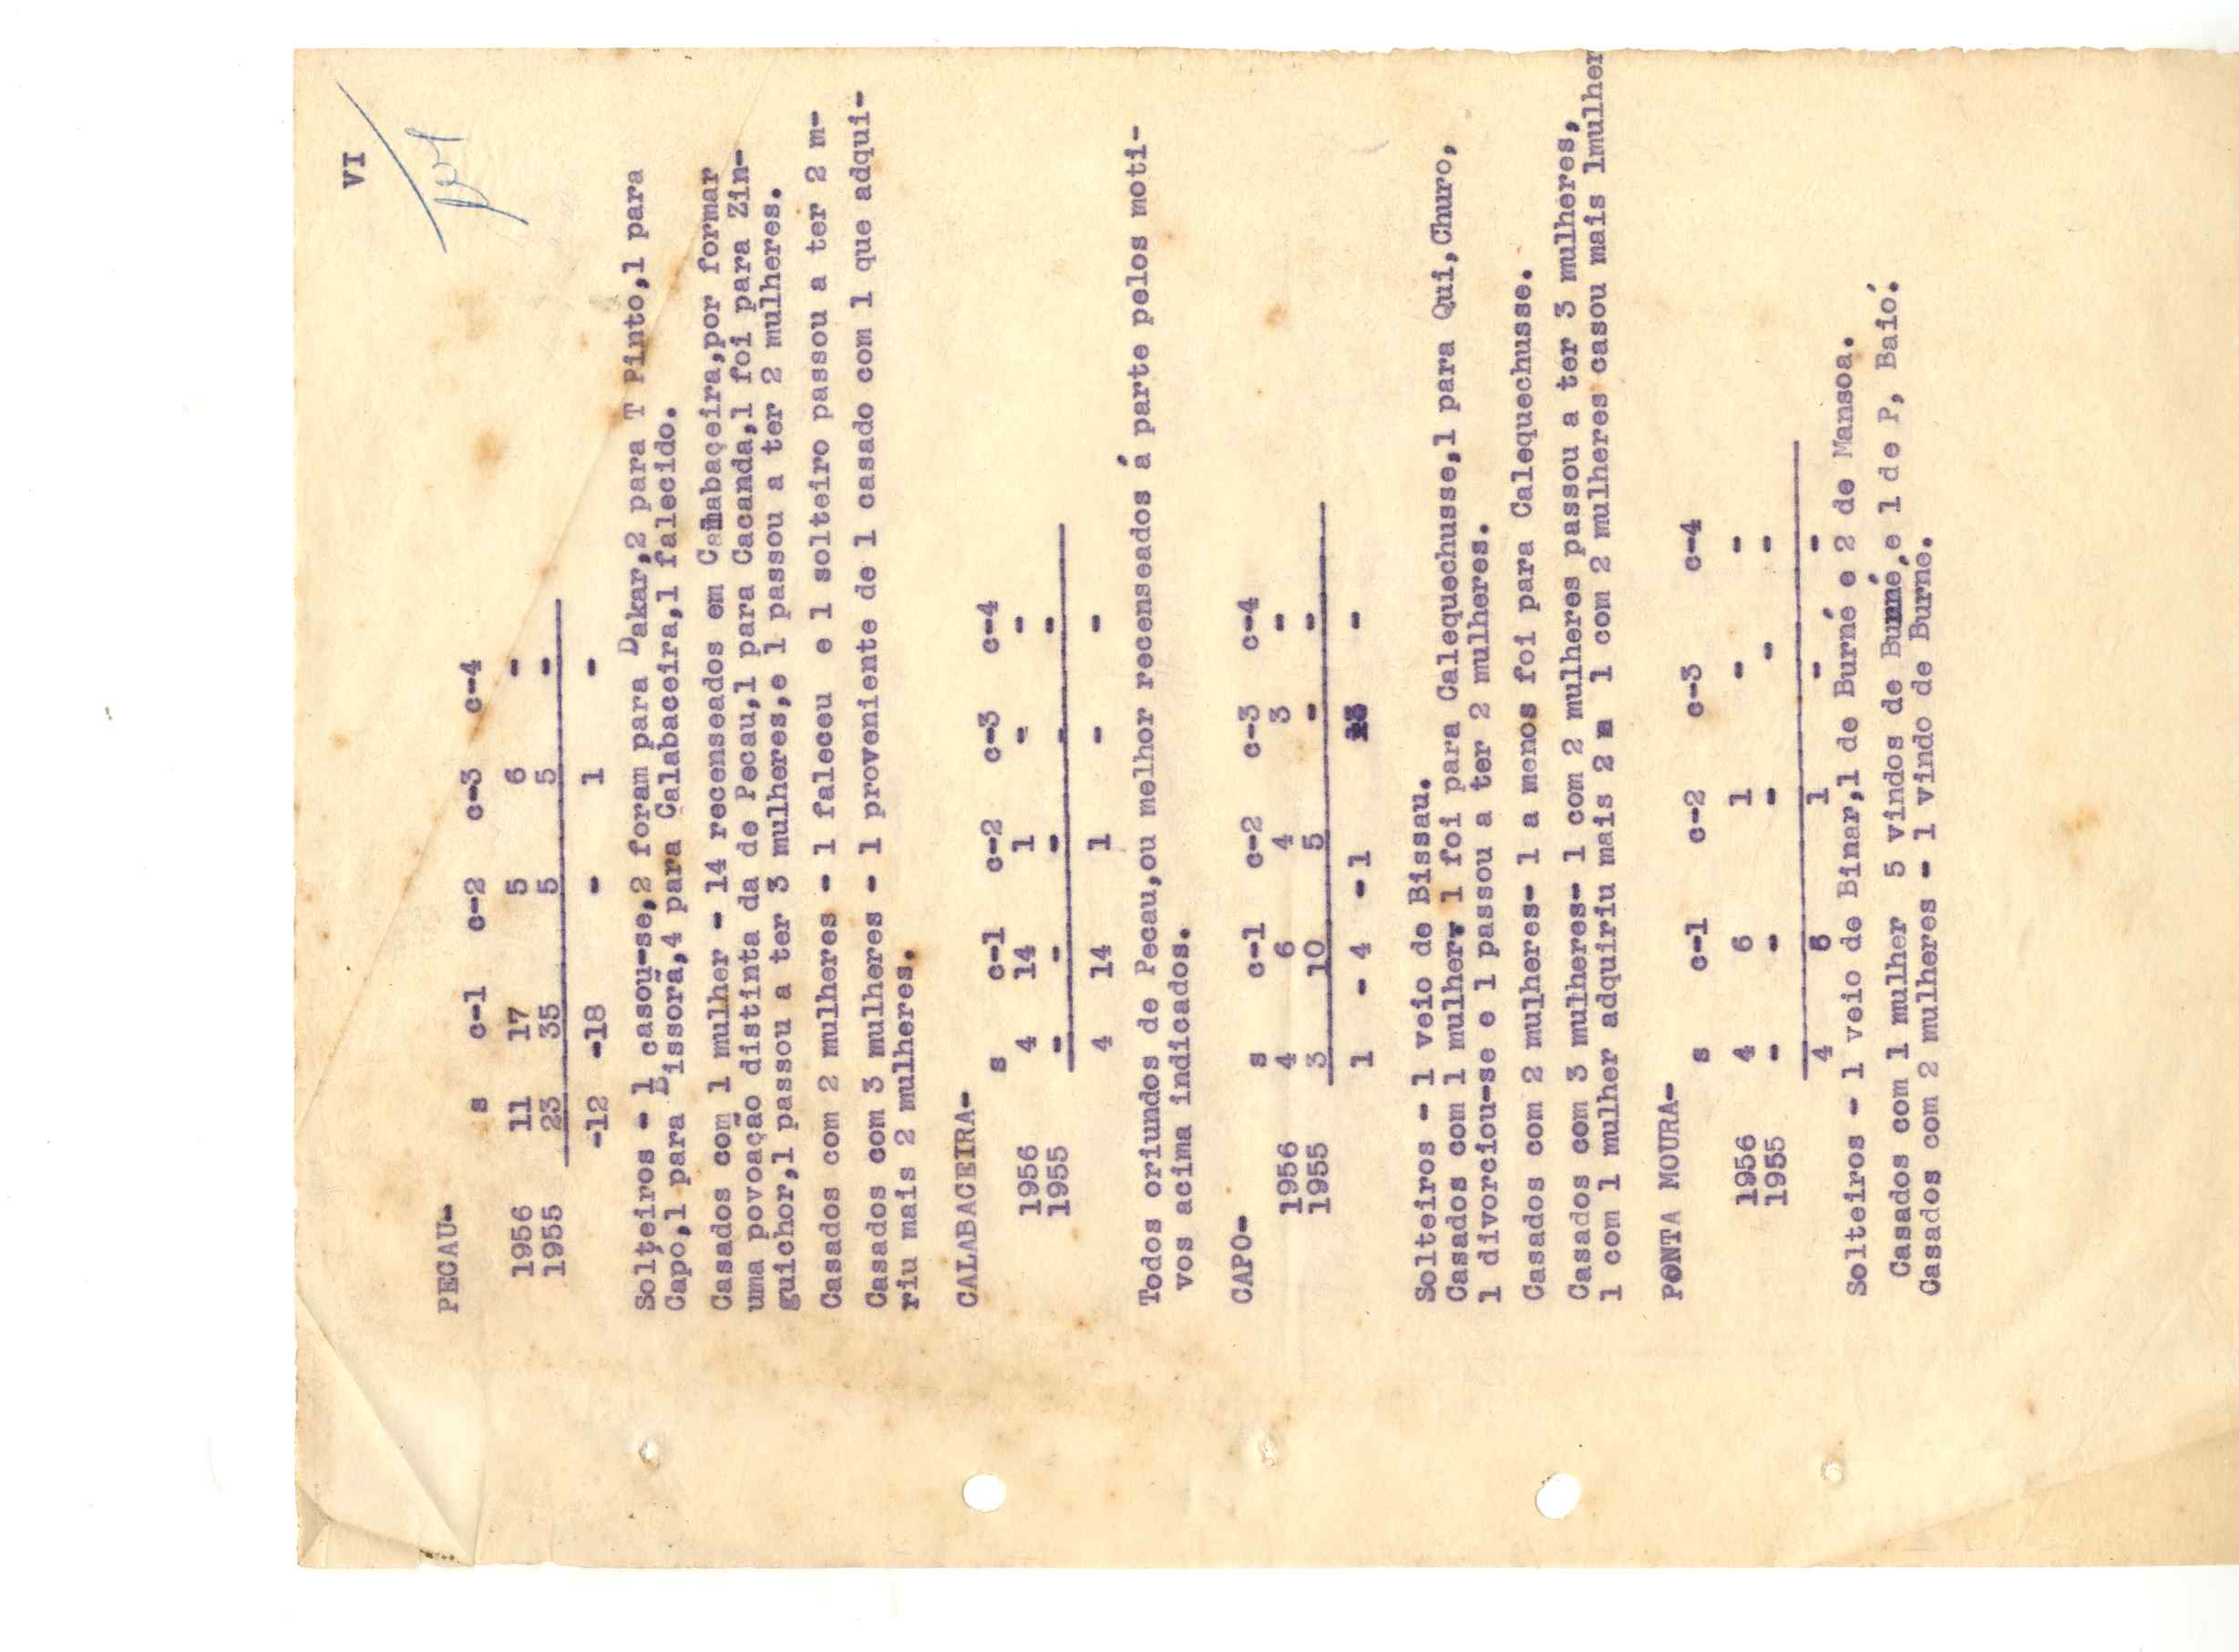 VI
PECAU-
s c-1 c-2 c-3 c-4
1956 11 17 5 6 -
1955 23 35 5 5 -
-12 -18 - 1 -
Solteiros - 1 casou-se,2 foram para Dakar,2 para T Pinto,1 para
Capo,1 para Bissorã,4 para Calabaceira,1 falecido.
Casados com 1 mulher - 14 recenseados em Camabaçeira,por formar
uma povoação distinta da de Pecau,1 para Cacanda,1 foi para Zin-
guichor,1 passou a ter 3 mulheres,e 1 passou a ter 2 mulheres.
Casados com 2 mulheres - 1 faleceu e 1 solteiro passou a ter 2 m-
Casados com 3 mulheres - 1 proveniente de 1 casado com 1 que adqui-
riu mais 2 mulheres.
CALABACEIRA-
s c-1 c-2 c-3 c-4
1956 4 14 1 - -
1955 - - - - -
4 14 1 - -
Todos oriundos de Pecau,ou melhor recenseados á parte pelos moti-
vos acima indicados.
CAPO-
s c-1 c-2 c-3 c-4
1956 4 6 4 3 -
1955 3 10 5 - -
1 - 4 - 1 3 -
Solteiros - 1 veio de Bissau.
Casados com 1 mulher- 1 foi para Calequechusse,1 para Qui,Churo,
1 divorciou-se e 1 passou a ter 2 mulheres.
Casados com 2 mulheres- 1 a menos foi para Calequechusse.
Casados com 3 mulheres- 1 com 2 mulheres passou a ter 3 mulheres,
1 com 1 mulher adquiriu mais 2 m 1 com 2 mulheres casou mais 1mulher
PONTA MOURA-
s c-1 c-2 c-3 c-4
1956 4 6 1 - -
1955 - - - - -
4 6 1 - -
Solteiros - 1 veio de Binar,1 de Burné e 2 de Mansoa.
Casados com 1 mulher 5 vindos de Burné,e 1 de P, Baió.
Casados com 2 mulheres - 1 vindo de Burne.